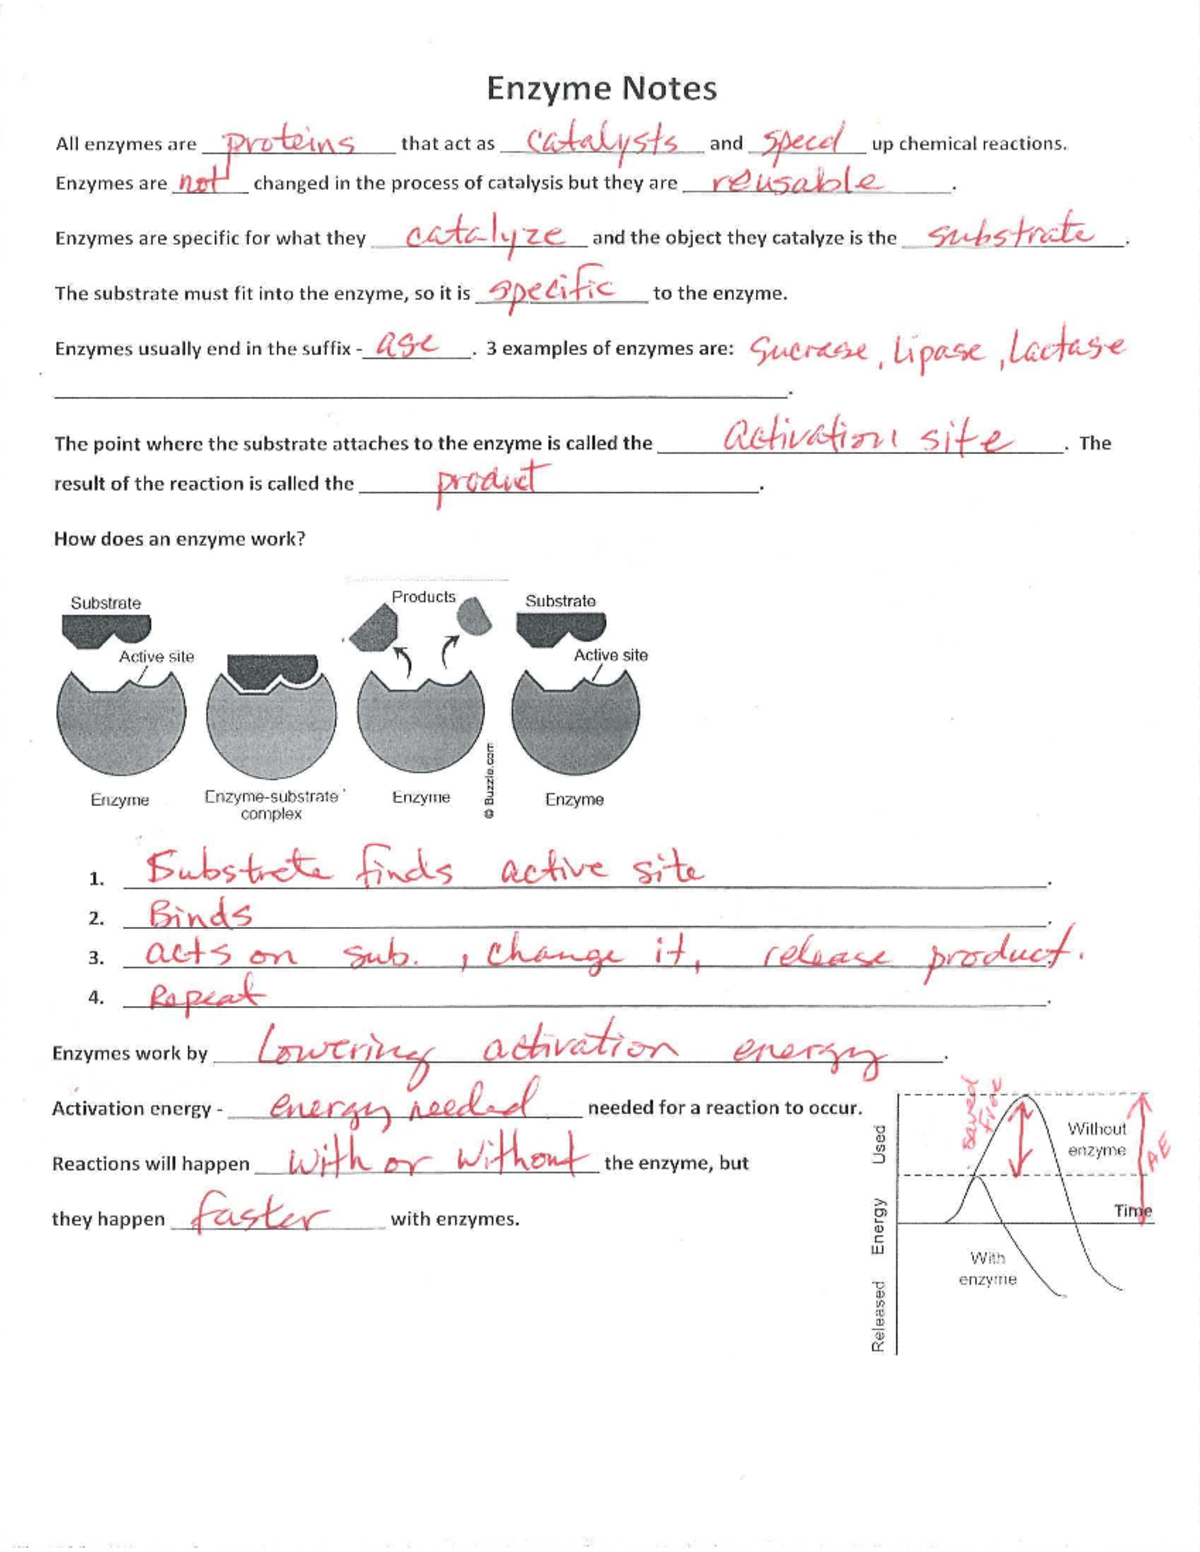 Enzyme Notes
All enzymes are proteins that act as catalysts and speed up chemical reactions.
Enzymes are not changed in the process of catalysis but they are reusable.
Enzymes are specific for what they catalyze and the object they catalyze is the substrate.
The substrate must fit into the enzyme, so it is specific to the enzyme.
Enzymes usually end in the suffix -ase. 3 examples of enzymes are: Sucrase, Lipase, Lactase
.
The point where the substrate attaches to the enzyme is called the Activation site. The
result of the reaction is called the product.
How does an enzyme work?
Substrate Products Substrate
Active site Active site
Enzyme Enzyme-substrate complex Enzyme © Buzzle.com Enzyme
1. Substrate finds active site.
2. Binds.
3. acts on sub., change it, release product.
4. Repeat.
Enzymes work by Lowering activation energy.
Activation energy - energy needed needed for a reaction to occur.
Reactions will happen with or without the enzyme, but
they happen faster with enzymes.
Released Energy Used
saved
Without
enzyme
AE
Time
With
enzyme